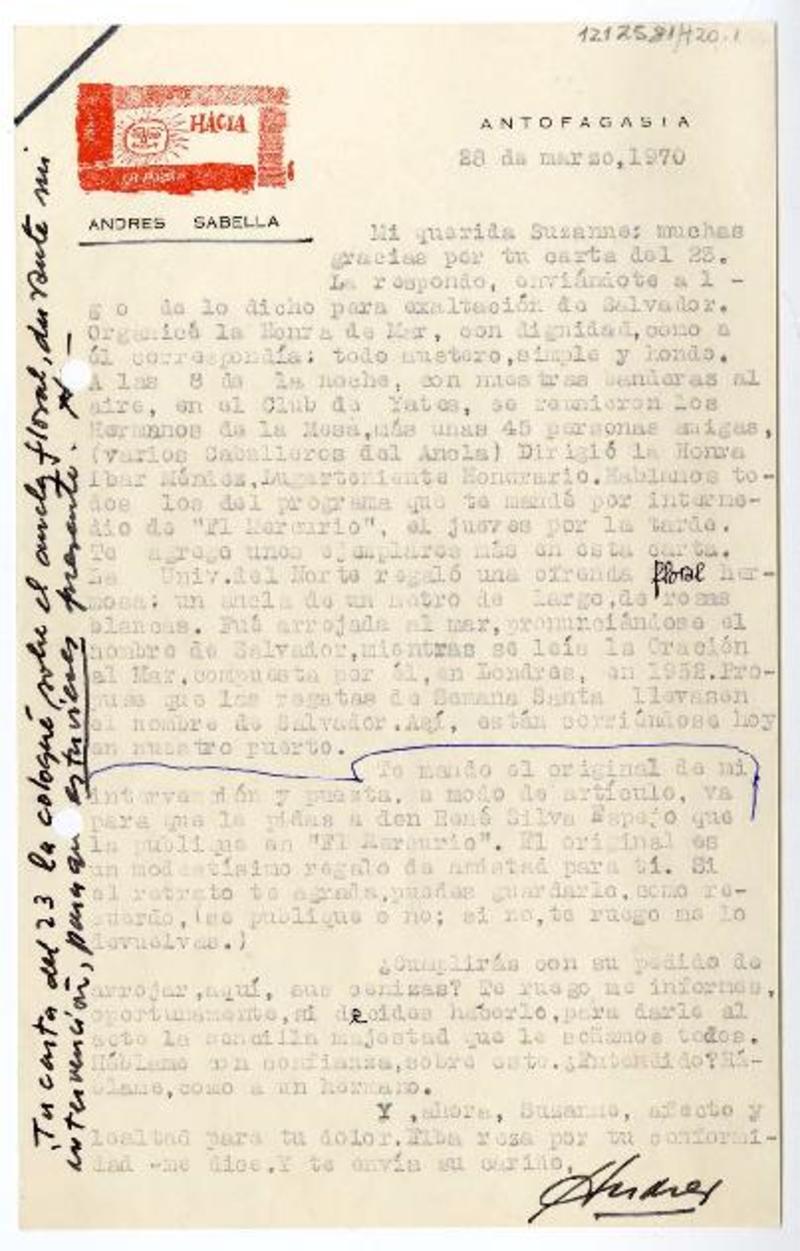 1212581/420.1
HACIA
ANTOFAGASTA
28 de marzo,1970
ANDRES SABELLA
Mi querida Suzanne: muchas
gracias por tu carta del 23.
La respondo, enviándote a l -
g o de lo dicho para exaltación de Salvador.
Organicé la Honra de Mar, con dignidad,como a
él correspondía: todo austero,simple y hondo.
A las 8 de la noche, con nuestras banderas al
aire, en el Club de Yates, se reunieron los
Hermanos de la Mesa,más unas 45 personas amigas,
(varios Caballeros del Ancla) Dirigió la Honra
Ibar Méndez,Lugarteniente Honorario.Hablamos to-
dos los del programa que te mandé por interme-
dio de "El Mercurio", el jueves por la tarde.
Te agrego unos ejemplares más en esta carta.
La Univ.del Norte regaló una ofrenda floral her-
mosa: un ancla de un metro de largo,de rosas
blancas. Fué arrojada al mar,pronunciándose el
nombre de Salvador,mientras se leía la Oración
al Mar,compuesta por él,en Londres, en 1952.Pro-
puse que las regatas de Semana Santa llevasen
el nombre de Salvador.Así, están corriéndose hoy
en nuestro puerto.
Te mando el original de mi
intervención y puesta, a modo de artículo, va
para que la pidas a don René Silva Espejo que
la publique en "El Mercurio". El original es
un modestísimo regalo de amistad para ti. Si
el retrato te agrada,puedes guardarlo,como re-
cuerdo,(se publique o no; si no,te ruego me lo
devuelvas.)
¿Cumplirás con su pedido de
arrojar,aquí, sus cenizas? Te ruego me informes,
oportunamente,si decides haberlo,para darle al
acto la sencilla majestad que le soñamos todos.
Háblame con confianza,sobre esto.¿Entendido?Há-
blame,como a un hermano.
Y ,ahora, Suzanne, afecto y
lealtad para tu dolor.Elba reza por tu conformi-
dad -me dice.Y te envía su cariño,
Andres
Tu carta del 23 la coloqué sobre el ancla floral, durante mi
intervención, para que estuvieses presente.